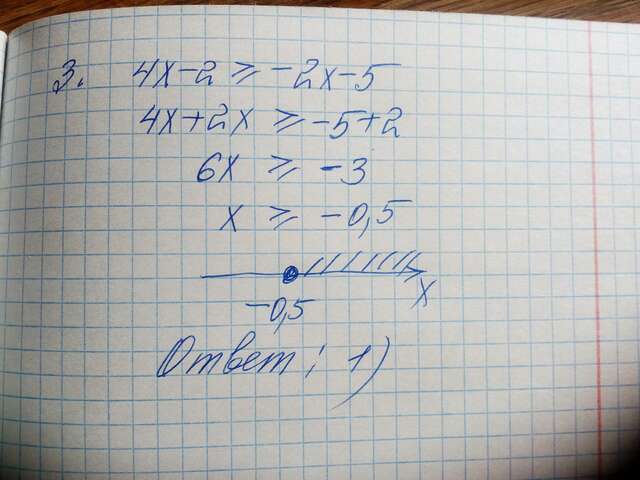 3. 4x-2 ≥ -2x-5
4x+2x ≥ -5+2
6x ≥ -3
x ≥ -0,5
-0,5 x
Ответ: 1)